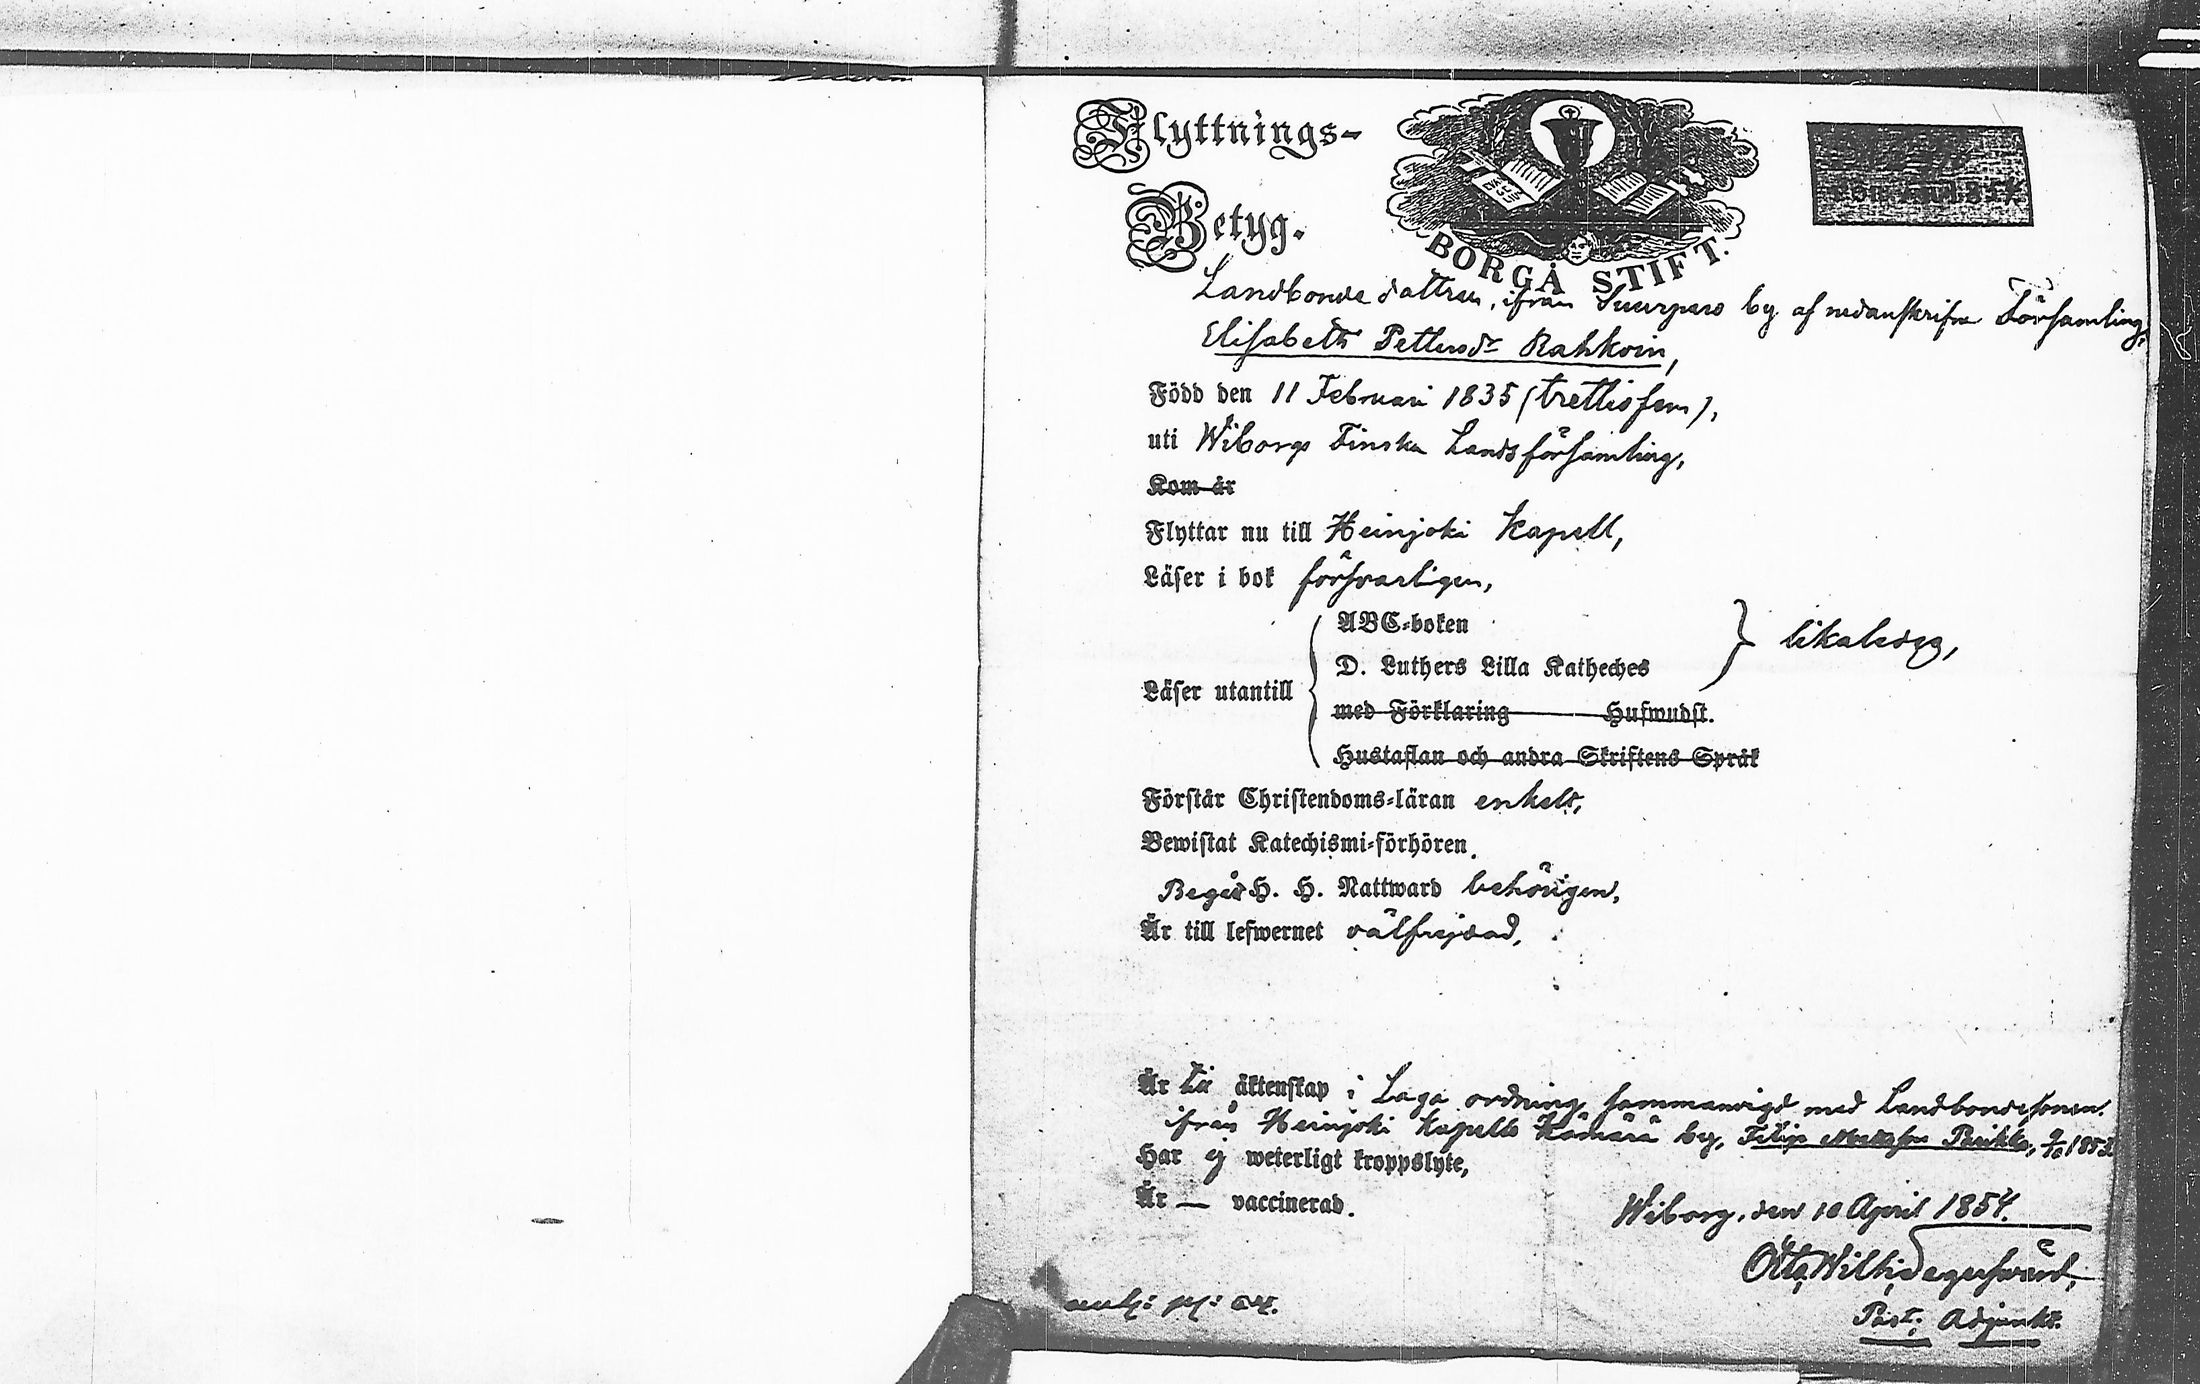 Flyttnings-
Betyg.
BORGÅ STIFT.
Landbonde dottren, ifrån Suurpero by af nedanskrifne Församling,
Elisabeth Pettersdr Rahkoin,
Född den 11 Februari 1835 (trettiofem),
uti Wiborgs Finska Landsförsamling,
Kom år
Flyttar nu till Heinjoki Kapell,
Läser i bok försvarligen,
Läser utantill
ABC-boken
D. Luthers Lilla Katheches
med Förklaring Hufwudst.
Hustaflan och andra Skriftens Språk
likaledes,
Förstår Christendoms-läran enkelt,
Bewistat Katechismi-förhören.
Begår H. H. Nattward behörigen,
Är till lefwernet välfrejdad,
Är till äktenskap i Laga ordning sammanvigd med Landbondesonen
ifrån Heinjoki Kapells Kämärä by, Filip
Har ej weterligt kroppslyte,
Är — vaccinerad.
Wiborg, den 10 April 1854.
Otto Wilh. Segersvärd,
Past. Adjunkt.